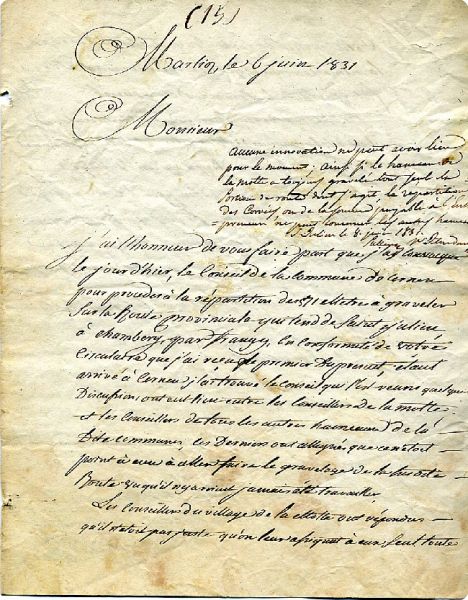 (15)
Marlioz, le 6 juin 1831
Monsieur
aucune innovation ne peut avoir lieu
pour le moment. ainsi si le hameau de
la Motte a toujours gravelé tout seul la
portion de route dont s'agit la répartition
des Corvées ou de la somme
premier ne peut concerner les autres hameaux
St Julien le 8 juin 1831.
J'ai l'honneur de vous faire part que j'ai convoqué
le jour d'hier, le Conseil de la Commune de Cernex
pour procéder à la répartition des 81 mètres à graveler
sur la Route provinciale qui tend de Saint Julien
à Chambéry, par frangy, en conformité de votre
Circulaire que j'ai reçu le premier du présent, étant
arrivé à Cernex j'ai trouvé le Conseil quelque
Discussions, ont eu lieu entre les Conseillers de la motte
et les Conseillers de tous les autres hameaux de la
Dite Commune, ces Derniers ont allégués que ce n'etoit
point à eux à aller faire le gravelage de la susdite
Route vu qu'il n'y avoient jamais été travailler
Les Conseillers du village de la Motte ont répondus
qu'il n'etoit pas juste qu'on leur à eux seul toute